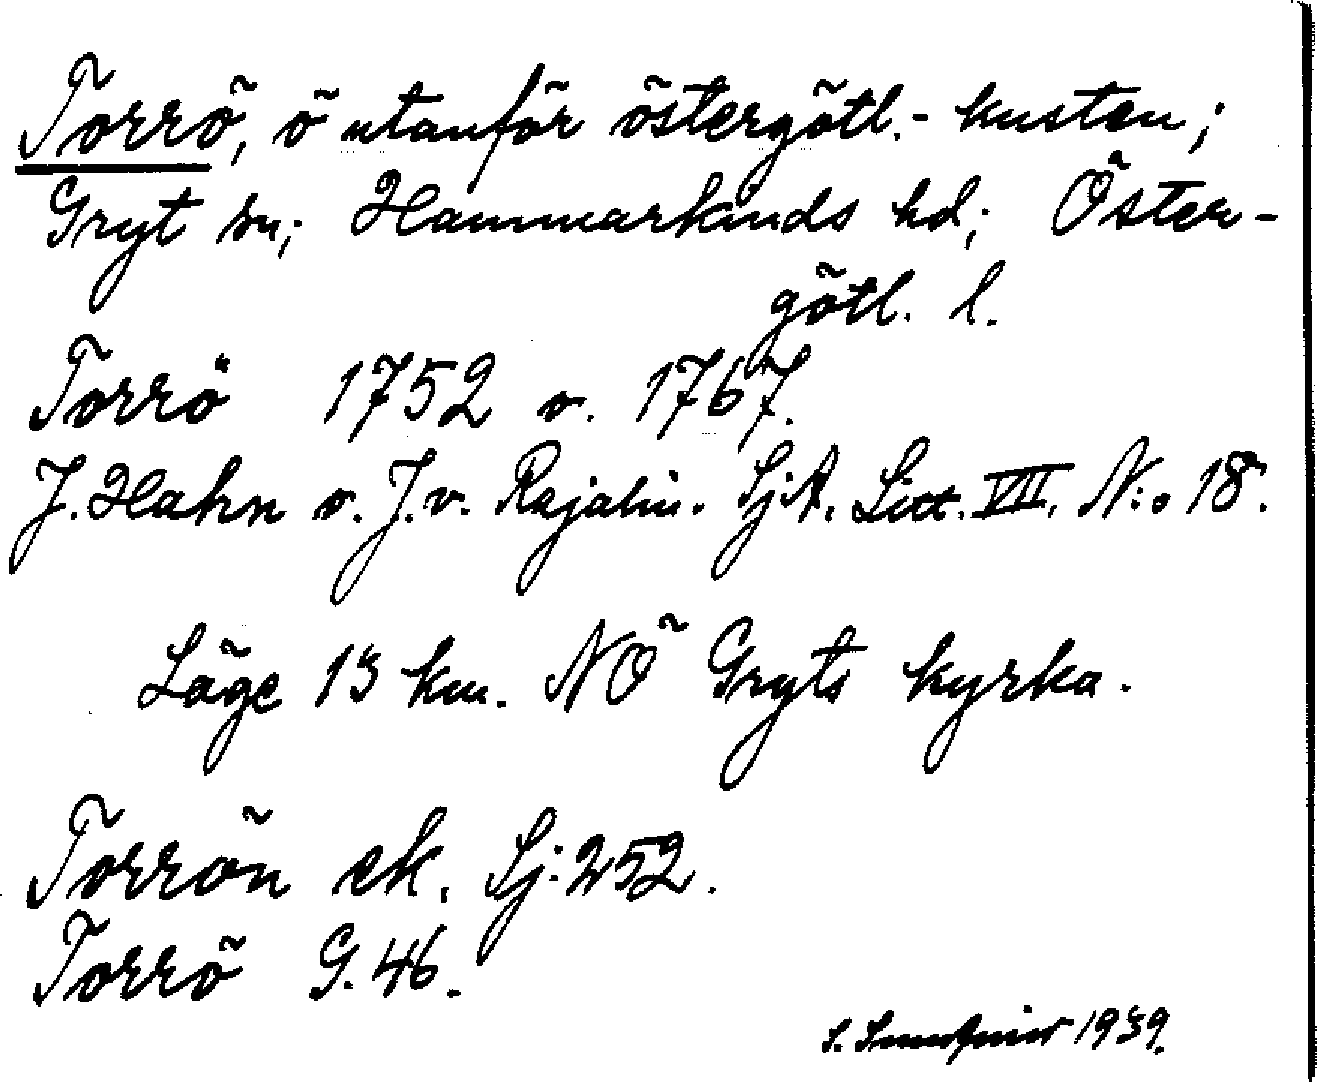 Torrö, ö utanför östergötl.- kusten;
Gryt sn; Hammarkinds hd; Öster-
götl. l.
Torrö 1752 o. 1767.
J. Hahn o. J. v. Rajalin. SjA. Litt. VII. N:o 18.
Läge 13 km. NÖ Gryts kyrka.
Torrön ek. Sj: 252.
Torrö G. 46.
S. 1939.